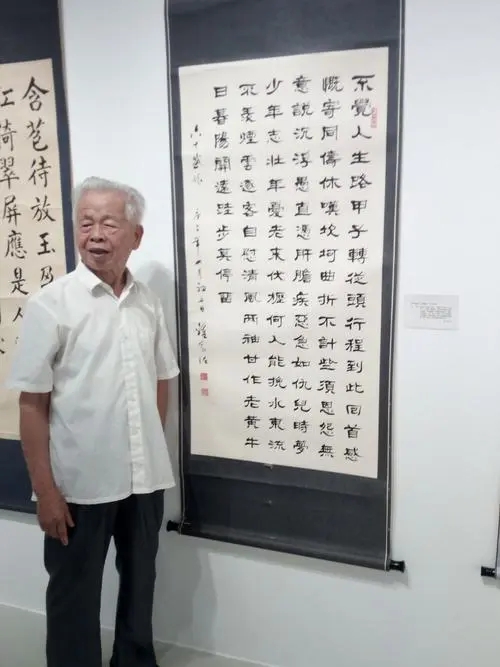 不覺人生路甲子轉從頭行程到此回首感
慨寄同儔休嘆坎坷曲折不計些須恩怨無
意說沉浮愚直憑肝膽疾惡急如仇兒時夢
少年志壯年憂老來伏櫪何人能挽水東流
不羨煙雲過客自慰清風兩袖甘作老黃牛
日暮陽關遠跬步莫停留
六十感懷
含苞待放玉
翠屏應是人